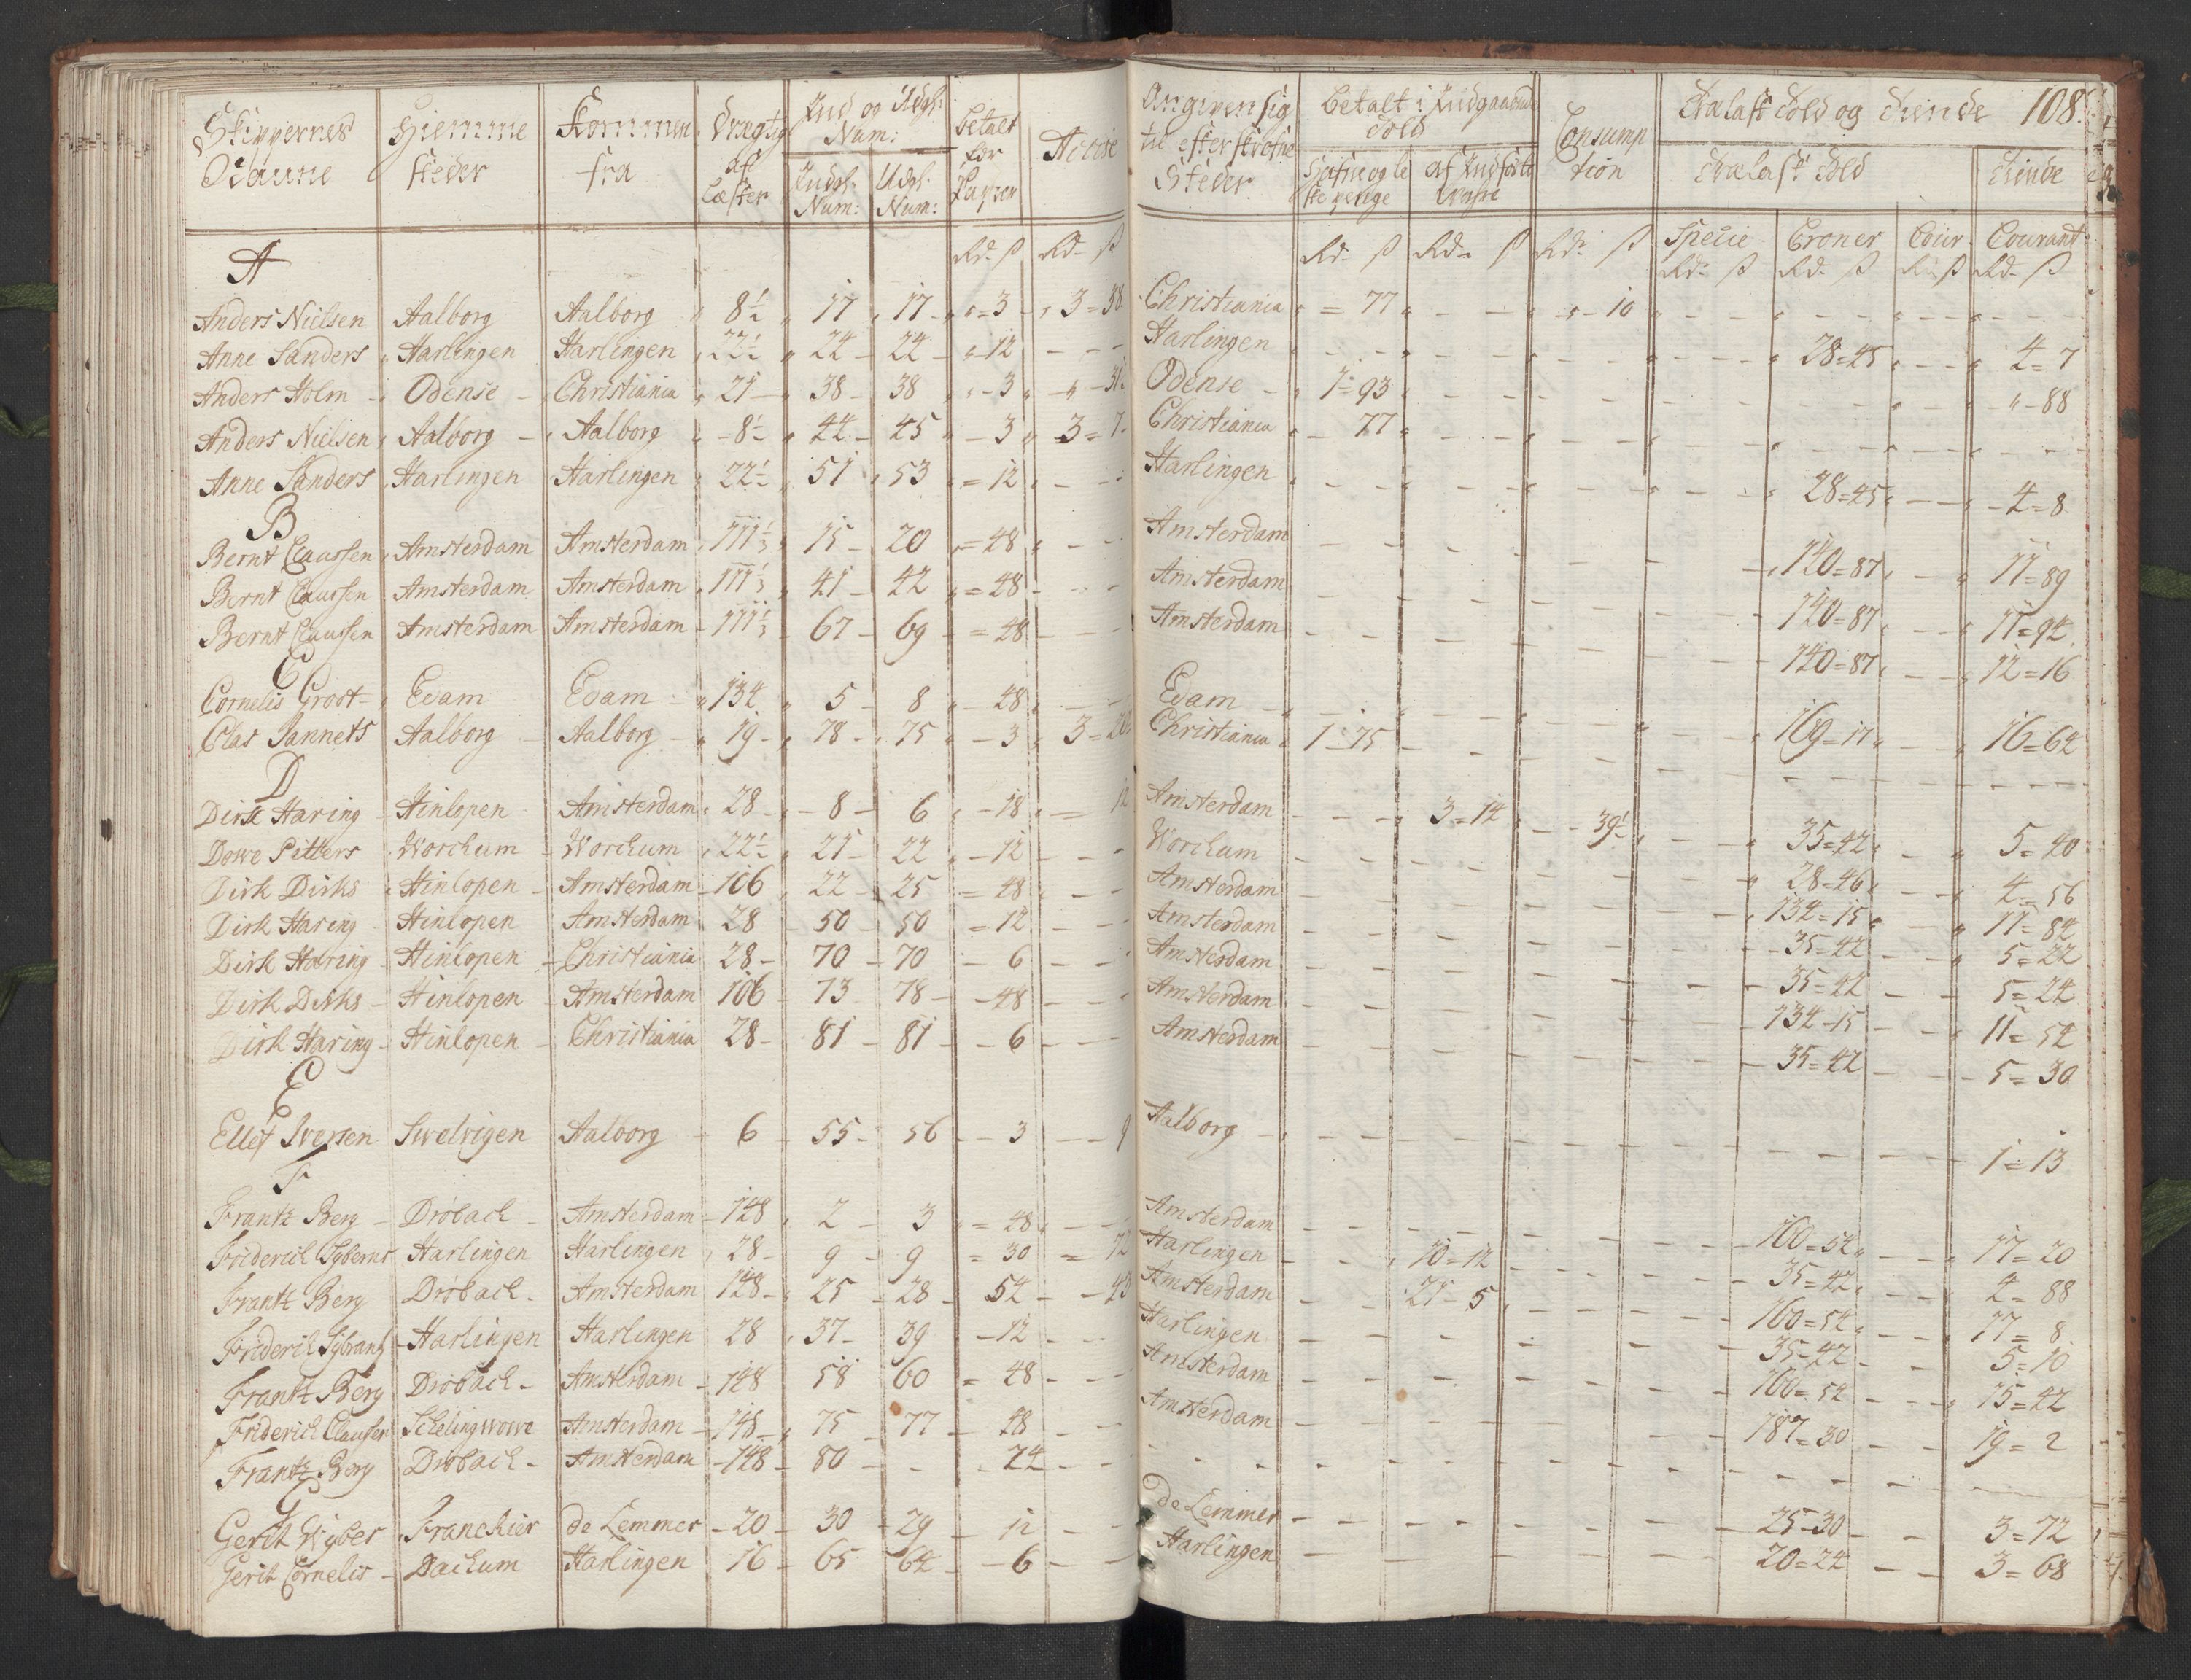 Skippernes Nanne | Hiemme steder | Kommen fra | Drægtig af Læster | Ind og Udgl: Num: | Betalt for Papper | Accise
Indgl: Num: | Udgl: Num:
Rd: ß | Rd: ß
A
Anders Nielsen | Aalborg | Aalborg | 8½ | 17 | 17 | 3 | 3=38
Anne Sanders | Harlingen | Harlingen | 22½ | 24 | 24 | 12
Anders Holm | Odense | Christiania | 21 | 38 | 38 | 3 | 31
Anders Nielsen | Aalborg | Aalborg | 8½ | 44 | 45 | 3 | 3=7
Anne Sanders | Harlingen | Harlingen | 22½ | 51 | 53 | 12
B
Bernt Claussen | Amsterdam | Amsterdam | 111⅓ | 15 | 20 | 48
Bernt Claussen | Amsterdam | Amsterdam | 111⅓ | 41 | 42 | 48
Bernt Claussen | Amsterdam | Amsterdam | 111⅓ | 67 | 69 | 48
C
Cornelis Groot | Edam | Edam | 134 | 5 | 8 | 48
Clas Jannets | Aalborg | Aalborg | 19 | 78 | 75 | 3 | 3=20
D
Dirk Haring | Hinlopen | Amsterdam | 28 | 8 | 6 | 18 | 12
Dowe Pitters | Worchum | Worchum | 22½ | 21 | 22 | 12
Dirk Dirks | Hinlopen | Amsterdam | 106 | 22 | 25 | 48
Dirk Haring | Hinlopen | Amsterdam | 28 | 50 | 50 | 12
Dirk Haring | Hinlopen | Christiania | 28 | 70 | 70 | 6
Dirk Dirks | Hinlopen | Amsterdam | 106 | 73 | 78 | 48
Dirk Haring | Hinlopen | Christiania | 28 | 81 | 81 | 6
E
Ellef Iversen | Swelvigen | Aalborg | 6 | 55 | 56 | 3 | 9
F
Frantz Berg | Dröbach | Amsterdam | 148 | 2 | 3 | 48
Friderich Syberns | Harlingen | Harlingen | 28 | 9 | 9 | 30 | 72
Frantz Berg | Dröbach | Amsterdam | 148 | 25 | 28 | 54 | 43
Friderich Sybrantz | Harlingen | Harlingen | 28 | 37 | 39 | 12
Frantz Berg | Dröbach | Amsterdam | 148 | 58 | 60 | 48
Friderich Clausen | Schelingwowe | Amsterdam | 148 | 75 | 77 | 48
Frantz Berg | Dröbach | Amsterdam | 148 | 80 | 24
G
Gerrit Wyber | Franekier | de Lemmer | 20 | 30 | 29 | 12
Gerit Cornelis | Dackum | Harlingen | 16 | 65 | 64 | 6
Angiven sig til efterskrefne Steder | Betalt i Indgaaende Told | Consumption | Trælast Told og Tiende | 108.
af Indførte | Trælast Told | Tiende
Rd: ß | Rd: ß | Rd: ß | Specie Rd: ß | Croner Rd: ß | Cour ß | Courant Rd: ß
Christiania | 77 | 10
Harlingen | 28=45 | 4=7
Odense | 1=93 | 88
Christiania | 77
Harlingen | 28=45 | 4=8
Amsterdam | 140=87 | 11=89
Amsterdam | 140=87 | 11=94
Amsterdam | 140=87 | 12=16
Edam | 169=17 | 16=64
Christiania | 1=75
Amsterdam | 3=14 | 39½ | 35=42 | 5=40
Worchum | 28=46 | 4=56
Amsterdam | 134=15 | 11=84
Amsterdam | 35=42 | 5=22
Amsterdam | 35=42 | 5=24
Amsterdam | 134=15 | 11=54
Amsterdam | 35=42 | 5=30
Aalborg | 1=13
Amsterdam | 160=54 | 17=20
Harlingen | 10=14 | 35=42 | 4=88
Amsterdam | 21=5 | 160=54 | 17=8
Harlingen | 35=42 | 5=10
Amsterdam | 160=54 | 15=42
Amsterdam | 187=30 | 19=2
de Lemmer | 25=30 | 3=72
Harlingen | 20=24 | 3=68